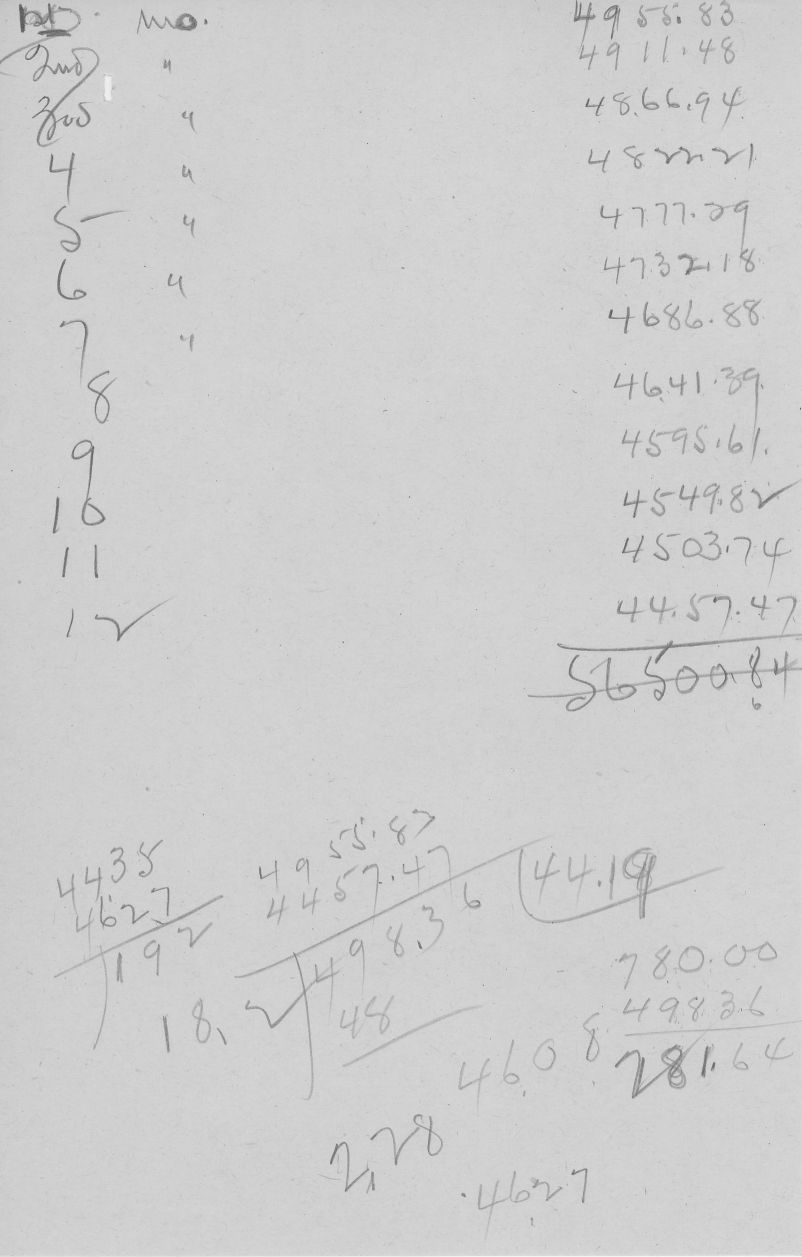 1st mo. 4955.83
2nd " 4911.48
3rd " 4866.94
4 " 4822.21
5 " 4777.29
6 " 4732.18
7 " 4686.88
8 4641.39
9 4595.61.
10 4549.82
11 4503.74
12 44.57.47
56500.84
6
4435
4627
192
4955.83
4457.47
498.36
44.19
18.2
48
780.00
498.36
281.64
46.08
2.28
.4627